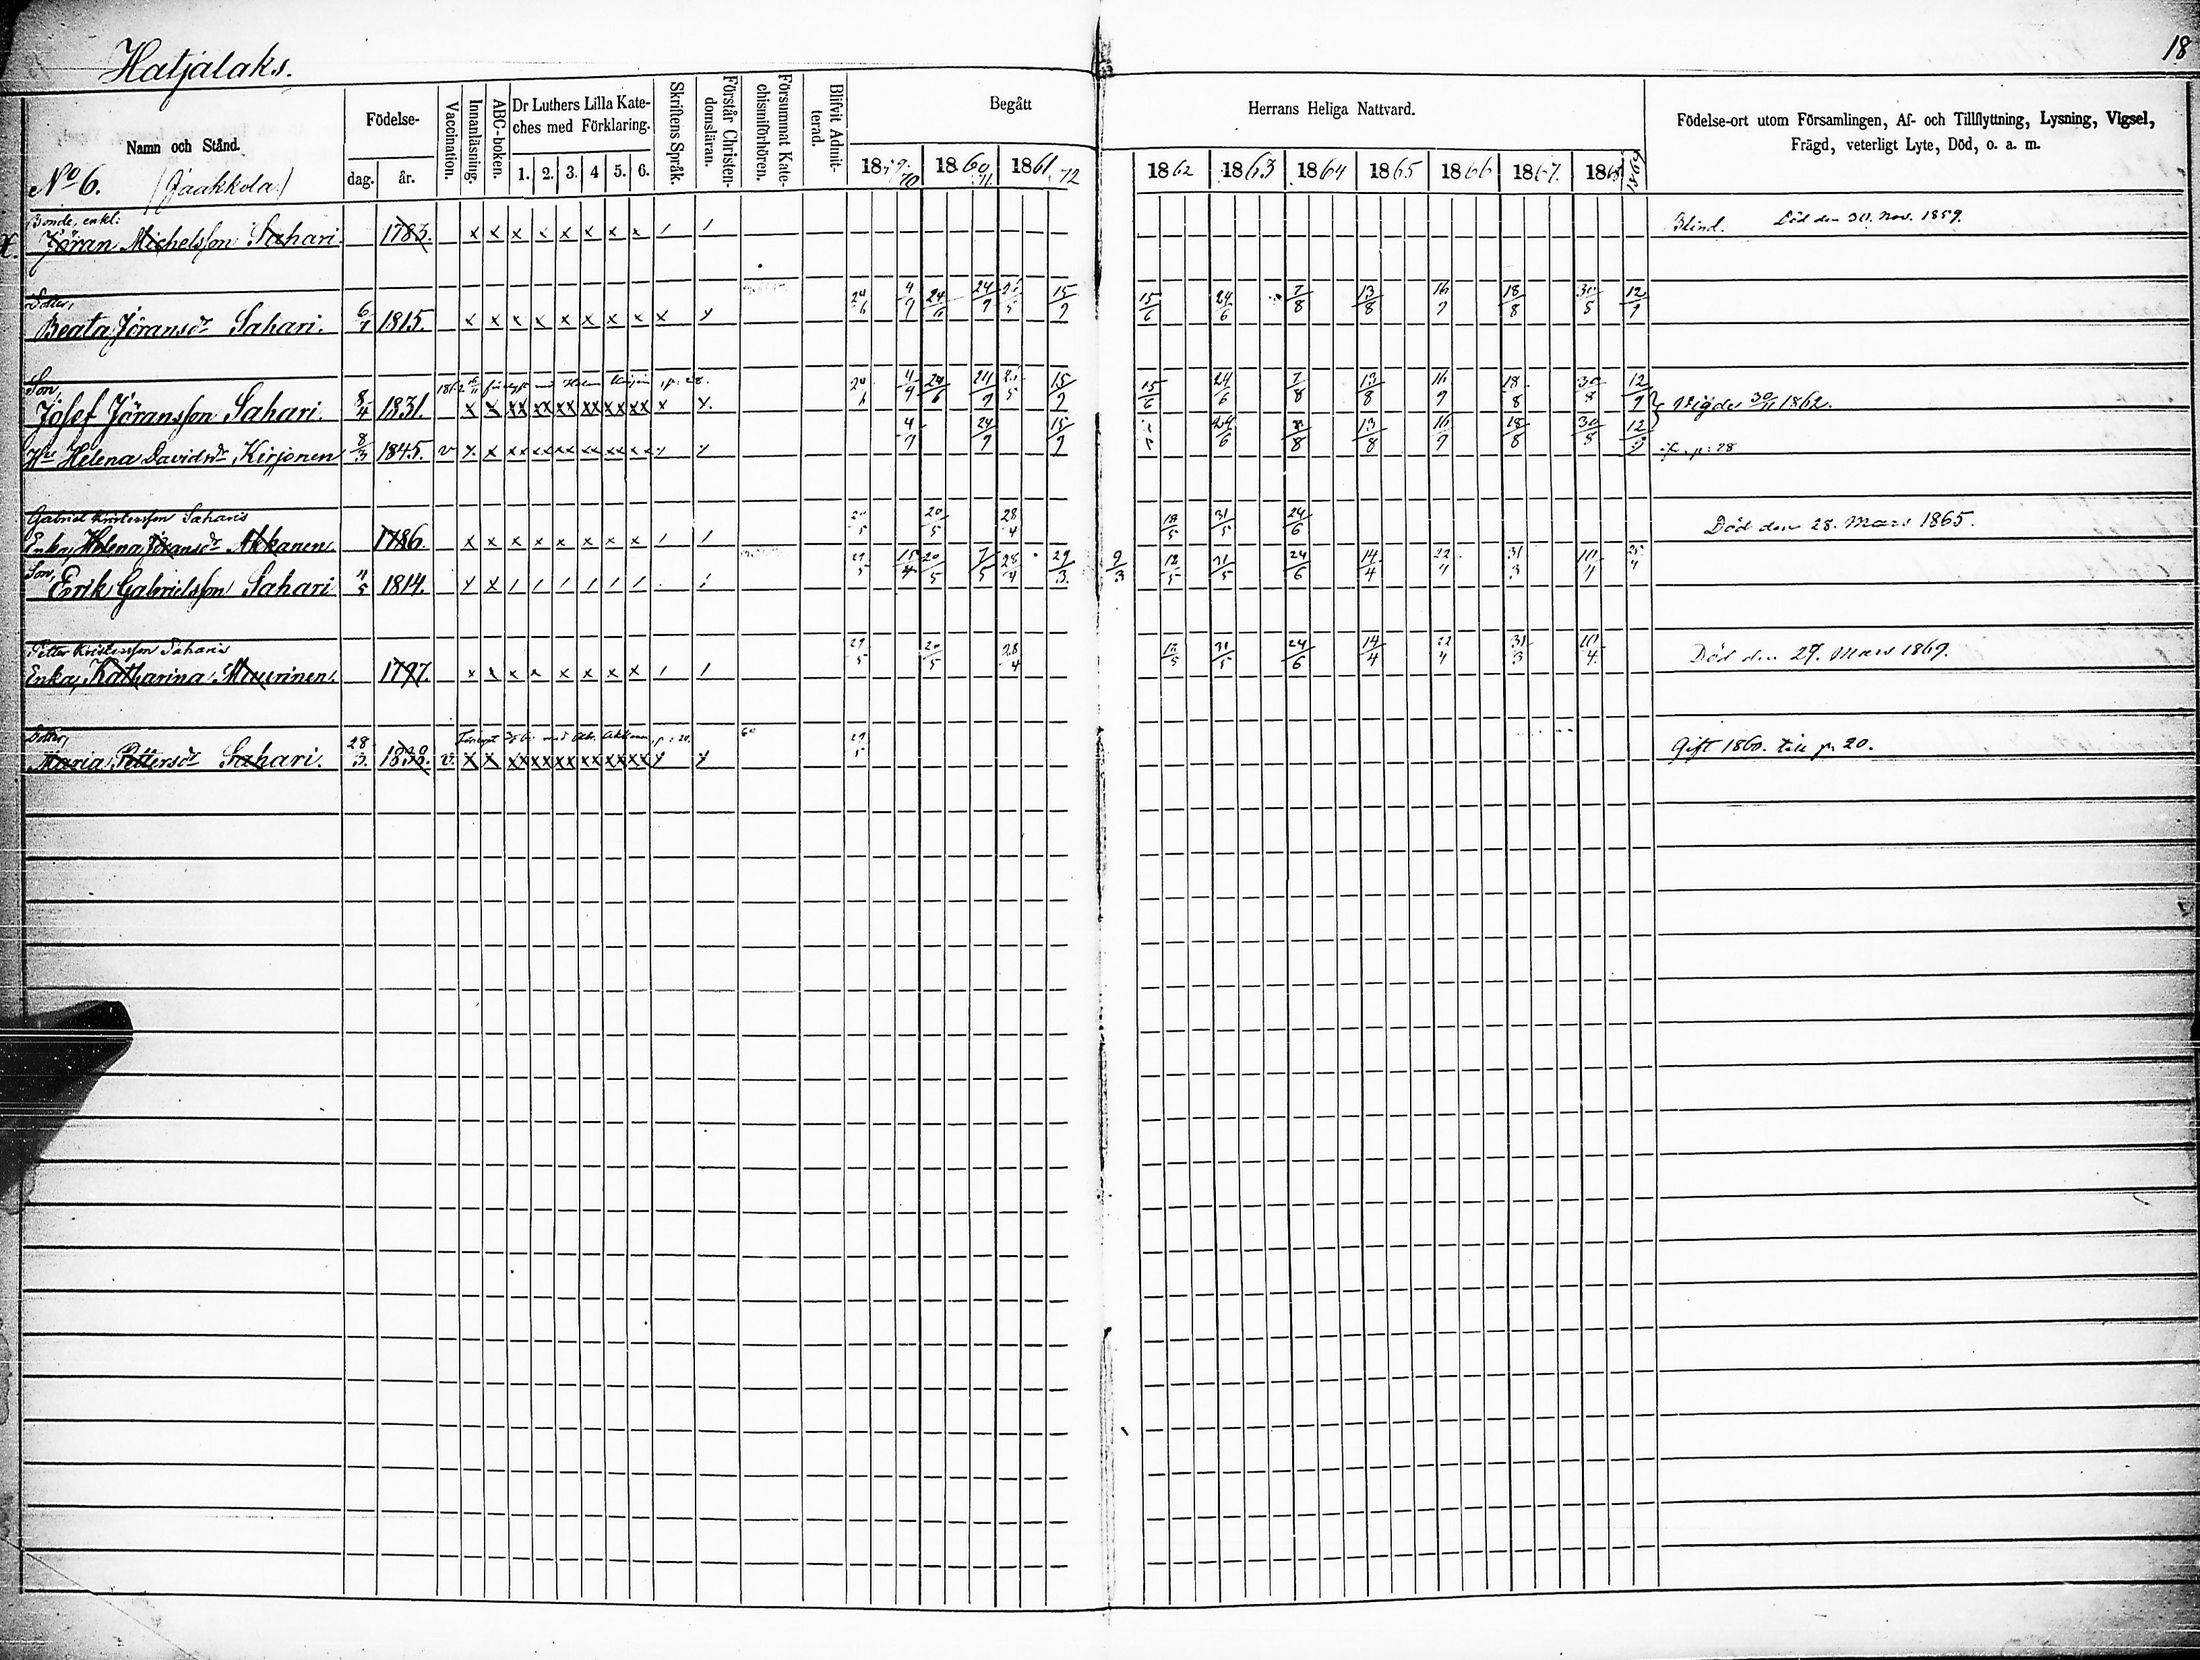 Hatjalaks.
18
Namn och Stånd.
Födelse-
dag.
år.
Vaccination.
Innanläsning.
ABC-boken.
Dr Luthers Lilla Kate-
ches med Förklaring.
1. 2. 3. 4 5. 6.
Skriftens Språk.
Förstår Christen-
domsläran.
Försummat Kate-
chismiförhören.
Blifvit Admit-
terad.
Begått
Herrans Heliga Nattvard.
1859. 70 1860 71. 1861 72
1862 1863 1864 1865 1866 1867. 1868 1869
Födelse-ort utom Församlingen, Af- och Tillflyttning, Lysning, Vigsel,
Frägd, veterligt Lyte, Död, o. a. m.
No 6. (Jaakkola)
Bonde, enkl:
Jöran Michelsson Sahari. 1783. x x x x x x x x / / Blind. Död den 30. Nov. 1859.
Dotter,
Beata Jöransdr Sahari. 1815. x x x x x x x x x x 24/6 4/9 24/6 24/9 15/9 15/6 24/6 7/8 13/8 16/9 18/8 30/5 12/9
Son,
Josef Jöransson Sahari. 8/4 1831. x x xx xx xx xx xx xx x x. 4/9 24/6 24/9 15/9 15/6 24/6 7/8 13/8 16/9 18/8 30/8 12/9 Vigdes 30/11 1862.
Hu Helena Davidsdr Kirjonen 8/3 1845. v x x xx xx xx xx xx xx x x 4/9 24/9 15/9 24/6 7/8 13/8 16/9 18/8 30/8 12/9 p: 28
Gabriel Kristersson Saharis
Enka, Helena Jöransdr Akkanen. 1786. x x x x x x x x / / 20/5 28/4 31/5 24/6 Död den 28. Mars 1865.
Son,
Erik Gabrielsson Sahari 1814. x x / / / / / / 15/4 20/5 7/5 28/4 29/3. 9/3 31/5 24/6 14/4 22/4 31/3
Petter Kristersson Saharis
Enka, Katharina Muurinen. 1797. x x x x x x x x / / 29/5 20/5 28/4 31/5 24/6 14/4 22/4 31/3 Död den 27. Mars 1869.
Dotter,
Maria Pettersdr Sahari. 28/3. 1838. v. x x xx xx xx xx xx xx x x 60 29/5 Gift 1860. till p. 20.